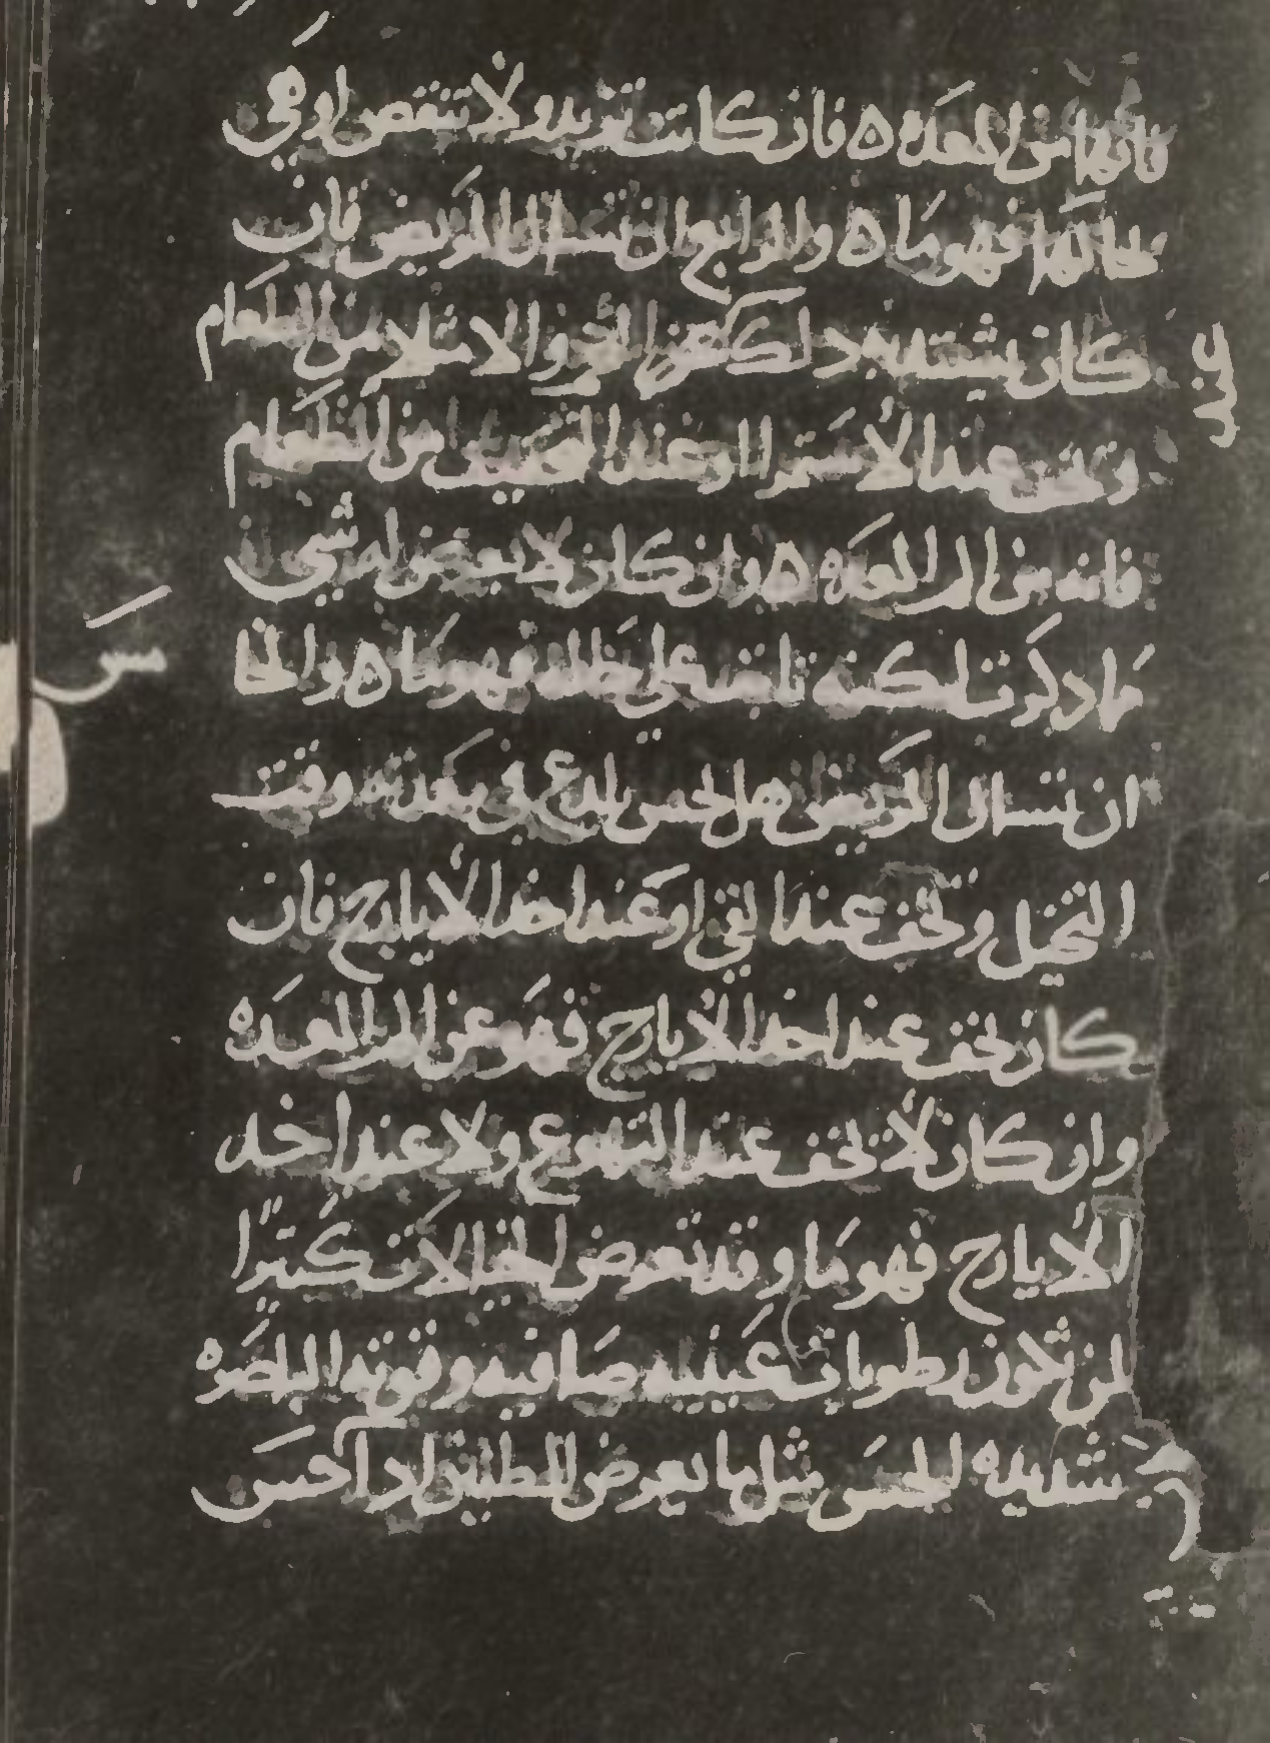 فانها من المعده ه فان كانت تزيد ولا تنقص او هي
حالها فهو ما ه والرابع ان تسال المريض فان
كان يشتد به ذلك عند التخم والامتلا من الطعام
وتخف عند الاستمرا او عند التخفيف من الطعام
فانه من الم المعده ه وان كان لا يعرض له شي
مما ذكرت لكنه ثابت على حاله فهو ما ه والخا
مس
ان تسال المريض هل يحس بلدغ في معدته وقت
التخيل وتخف عند القي او عند اخذ الايارج فان
كان تخف عند اخذ الايارج فهو عن الم المعده
وان كان لا تخف عند التهوع ولا عند اخذ
الايارج فهو ما وقد تعرض الخيالات كثيرا
لمن تكون رطوبات عينيه صافيه وقوته الباصره
شديده الحس مثل ما يعرض الطنين لذا حس